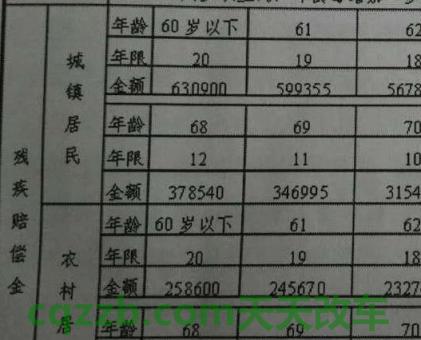 年龄 60岁以下 61 62
年限 20 19 18
金额 630900 599355 5678
年龄 68 69 70
年限 12 11 10
金额 378540 346995 3154
年龄 60岁以下 61 62
年限 20 19 18
金额 258600 245670 2327
年龄 68 69 70
残疾赔偿金
城镇居民
农村居
cqzzb.com天天改车